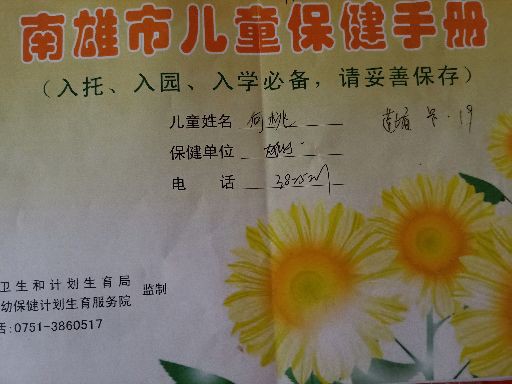 南雄市儿童保健手册
（入托、入园、入学必备，请妥善保存）
儿童姓名 何桃
保健单位
电 话
卫生和计划生育局
幼保健计划生育服务院 监制
话:0751-3860517